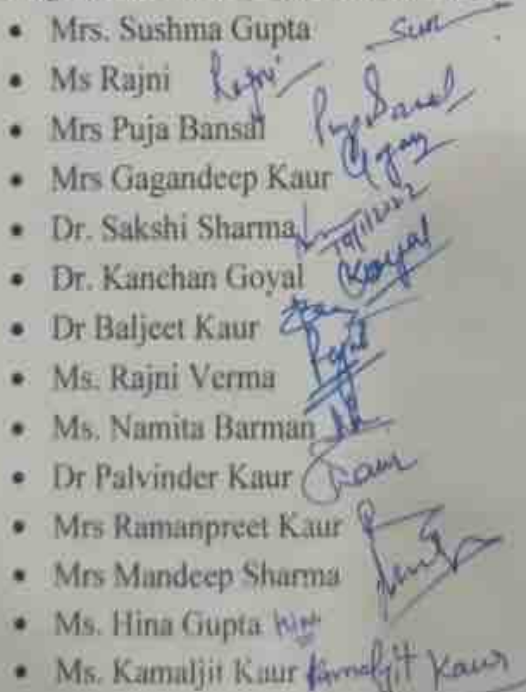 • Mrs. Sushma Gupta
• Ms Rajni Rajni
• Mrs Puja Bansal Puja Bansal
• Mrs Gagandeep Kaur Gagan
• Dr. Sakshi Sharma
• Dr. Kanchan Goyal Goyal
• Dr Baljeet Kaur
• Ms. Rajni Verma Rajni
• Ms. Namita Barman
• Dr Palvinder Kaur Kaur
• Mrs Ramanpreet Kaur
• Mrs Mandeep Sharma
• Ms. Hina Gupta
• Ms. Kamaljit Kaur Kamaljit Kaur